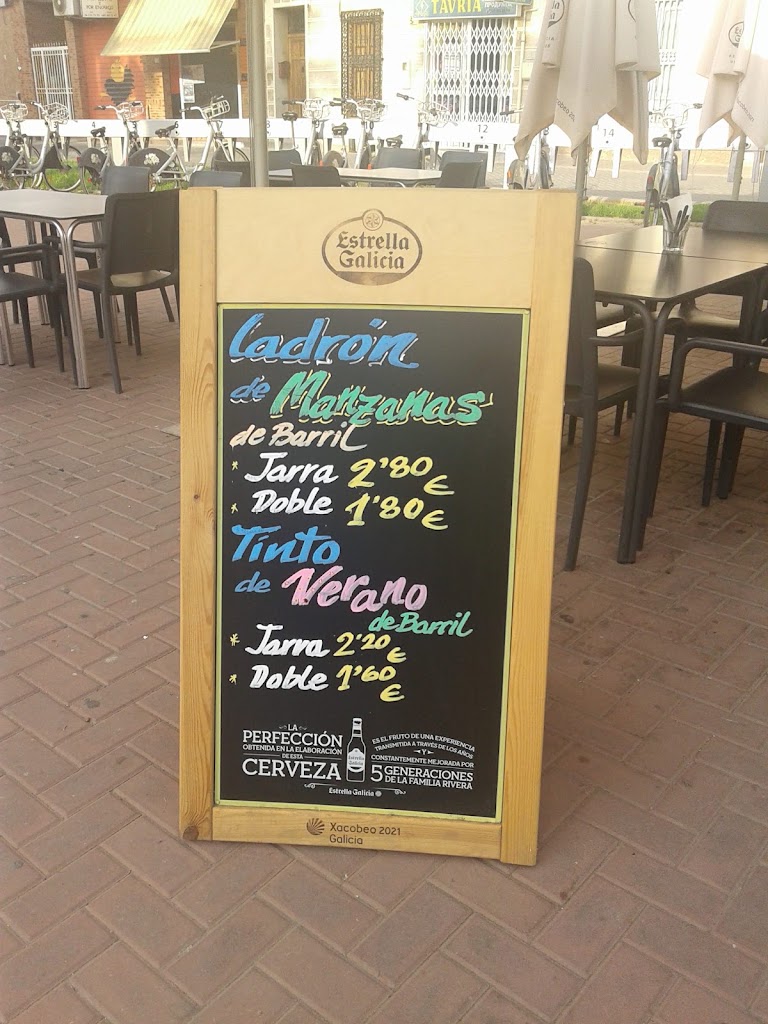 TAVRIA
12
14
Estrella
Galicia
Ladrón
de Manzanas
de Barril
* Jarra 2'80 €
* Doble 1'80 €
Tinto
de Verano
de Barril
* Jarra 2'20 €
* Doble 1'60 €
LA
PERFECCIÓN
OBTENIDA EN LA ELABORACIÓN
DE ESTA
CERVEZA
ES EL FRUTO DE UNA EXPERIENCIA
TRANSMITIDA A TRAVÉS DE LOS AÑOS
Y
CONSTANTEMENTE MEJORADA POR
5 GENERACIONES
DE LA FAMILIA RIVERA
Estrella Galicia
Xacobeo 2021
Galicia